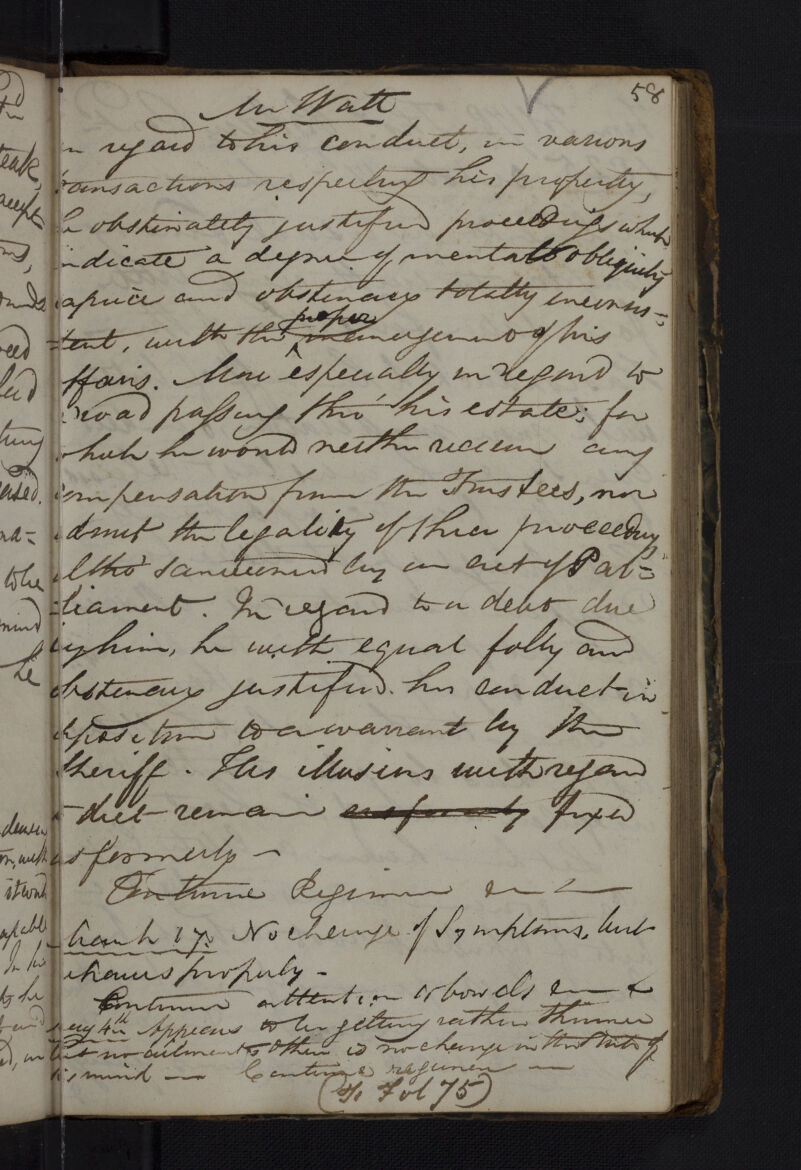 58
Mr Watt
in regard to his conduct, in various
transactions respecting his property,
he obstinately justified proceedings which
indicate a degree of mental obliquity
caprice and obstinacy totally inconsis-
tent, with the proper management of his
affairs. More especially in regard to
a road passing thro' his estate; for
which he would neither receive any
compensation from the Trustees, nor
admit the legality of their proceeding
altho' sanctioned by an act of Par=
=liament. In regard to a debt due
by him, he with equal folly and
obstinacy justified his conduct in
opposition to a warrant by the
Sheriff. His illusions with regard
to diet remain fixed
as formerly –
Continue Regimen
March 17. No change of Symptoms, but
behaves properly –
Continue attention to bowels
May 4th Appears to be getting rather thinner
but no ailment & there is no change in the state of
his mind — Continue regimen —
(To Fol 75)